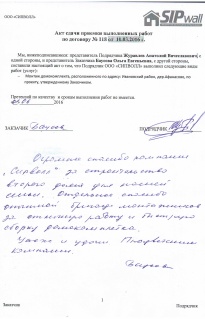 SIPwall
ООО «СИПВОЛЛ»
Акт сдачи приемки выполненных работ
по договору № 518 от 10.03.2016 г.
Мы, нижеподписавшиеся: представитель Подрядчика Журавлев Анатолий Вячеславович с
одной стороны, и представитель Заказчика Баусова Ольга Евгеньевна, с другой стороны,
составили настоящий акт о том, что Подрядчик ООО «СИПВОЛЛ» выполнил следующие виды
работ (услуг):
Монтаж домокомплекта, расположенного по адресу: Ивановский район, дер. по
проекту, утвержденному Заказчиком.
Претензий по качеству и срокам выполнения работ не имеется.
2016
ЗАКАЗЧИК
ПОДРЯДЧИК
Огромное спасибо компании
"Сипволл" за строительство
второго дома для нашей
семьи. Отдельное спасибо
бригаде монтажников
за отличную работу и быструю
сборку домокомплекта.
Удачи и процветания
компании.
Заказчик
Подрядчик